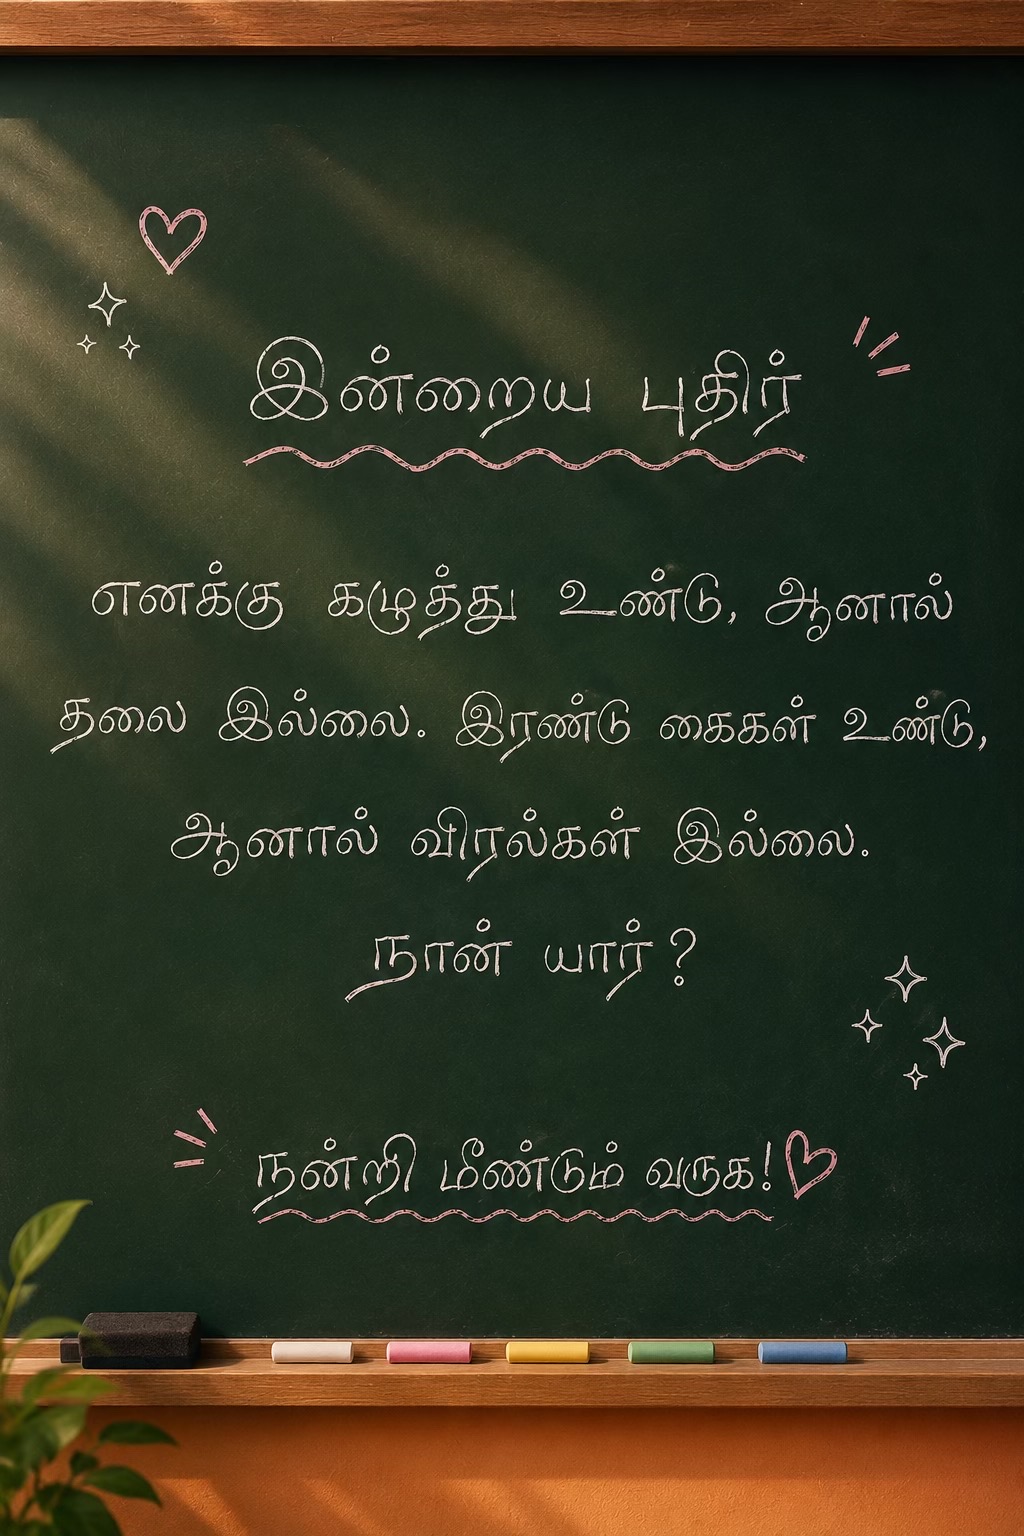 இன்றைய புதிர்
எனக்கு கழுத்து உண்டு, ஆனால்
தலை இல்லை. இரண்டு கைகள் உண்டு,
ஆனால் விரல்கள் இல்லை.
நான் யார்?
நன்றி மீண்டும் வருக!